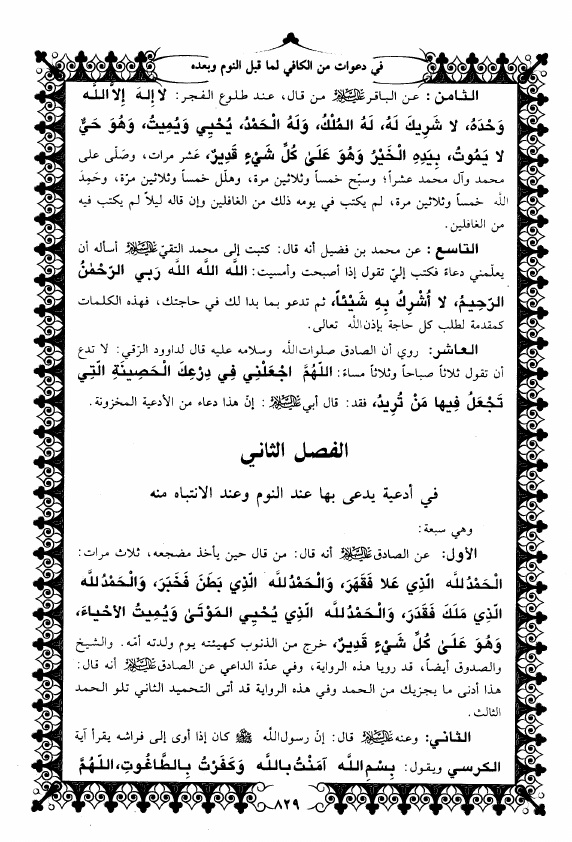 في دعوات من الكافي لما قبل النوم وبعده
الثامن: عن الباقر عليه السلام من قال، عند طلوع الفجر: لا إلهَ إلاّ اللّه
وَحْدَهُ، لا شَرِيكَ لَهُ، لَهُ المُلْكُ، وَلَهُ الْحَمْدُ، يُحْيِي وَيُمِيتُ، وَهُوَ حَيٌّ
لا يَمُوتُ، بِيَدِهِ الْخَيْرُ وَهُوَ عَلَىٰ كُلِّ شَيْءٍ قَدِيرٌ، عَشر مرات، وصَلّى على
محمد وآل محمد عشراً؛ وسبّح خمساً وثلاثين مرة، وهلّل خمساً وثلاثين مرّة، وحَمِدَ
الله خمساً وثلاثين مرة، لم يكتب في يومه ذلك من الغافلين وإن قاله ليلاً لم يكتب فيه
من الغافلين.
التاسع: عن محمد بن فضيل أنه قال: كتبت إلى محمد التقيّ عليه السلام أسأله أن
يعلّمني دعاءً فكتب إليّ تقول إذا أصبحت وأمسيت: اللّه اللّه اللّه رَبِي الرَّحْمٰنُ
الرَحِيمُ، لا أُشْرِكُ بِهِ شَيْئاً، ثم تدعو بما بدا لك في حاجتك، فهذه الكلمات
كمقدمة لطلب كل حاجة بإذن الله تعالى.
العاشر: روي أن الصادق صلوات الله وسلامه عليه قال لداوود الرّقي: لا تدع
أن تقول ثلاثاً صباحاً وثلاثاً مساءً: اللّهُمَّ اجْعَلْنِي فِي دِرْعِكَ الْحَصِينَةِ الَّتِي
تَجْعَلُ فِيها مَنْ تُرِيدُ، فقد: قال أبي عليه السلام: إنّ هذا دعاء من الأدعية المخزونة.
الفصل الثاني
في أدعية يدعى بها عند النوم وعند الانتباه منه
وهي سبعة:
الأول: عن الصادق عليه السلام أنه قال: من قال حين يأخذ مضجعه، ثلاث مرات:
الْحَمْدُ للّه الّذِي عَلا فَقَهَرَ، وَالْحَمْدُ للّه الّذِي بَطَنَ فَخَبَرَ، وَالْحَمْدُ للّه
الّذِي مَلَكَ فَقَدَرَ، وَالْحَمْدُ للّه الّذِي يُحْيِي المَوْتَىٰ وَيُمِيتُ الأحْياءَ،
وَهُوَ عَلَىٰ كُلِّ شَيْءٍ قَدِيرٌ، خرج من الذنوب كهيئته يوم ولدته أمّه. والشيخ
والصدوق أيضاً، قد رويا هذه الرواية، وفي عدّة الداعي عن الصادق عليه السلام أنه قال:
هذا أدنى ما يجزيك من الحمد وفي هذه الرواية قد أتى التحميد الثاني تلو الحمد
الثالث.
الثاني: وعنه عليه السلام قال: إنّ رسول الله ﷺ كان إذا أوى إلى فراشه يقرأ آية
الكرسي ويقول: بِسْمِ اللّه آمَنْتُ بِاللّه وَكَفَرْتُ بِالطَّاغُوتِ، اللّهُمَّ
٨٢٩